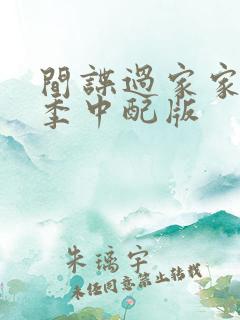 間諜過家家
季中配版
朱璃宇
未经同意禁止转载